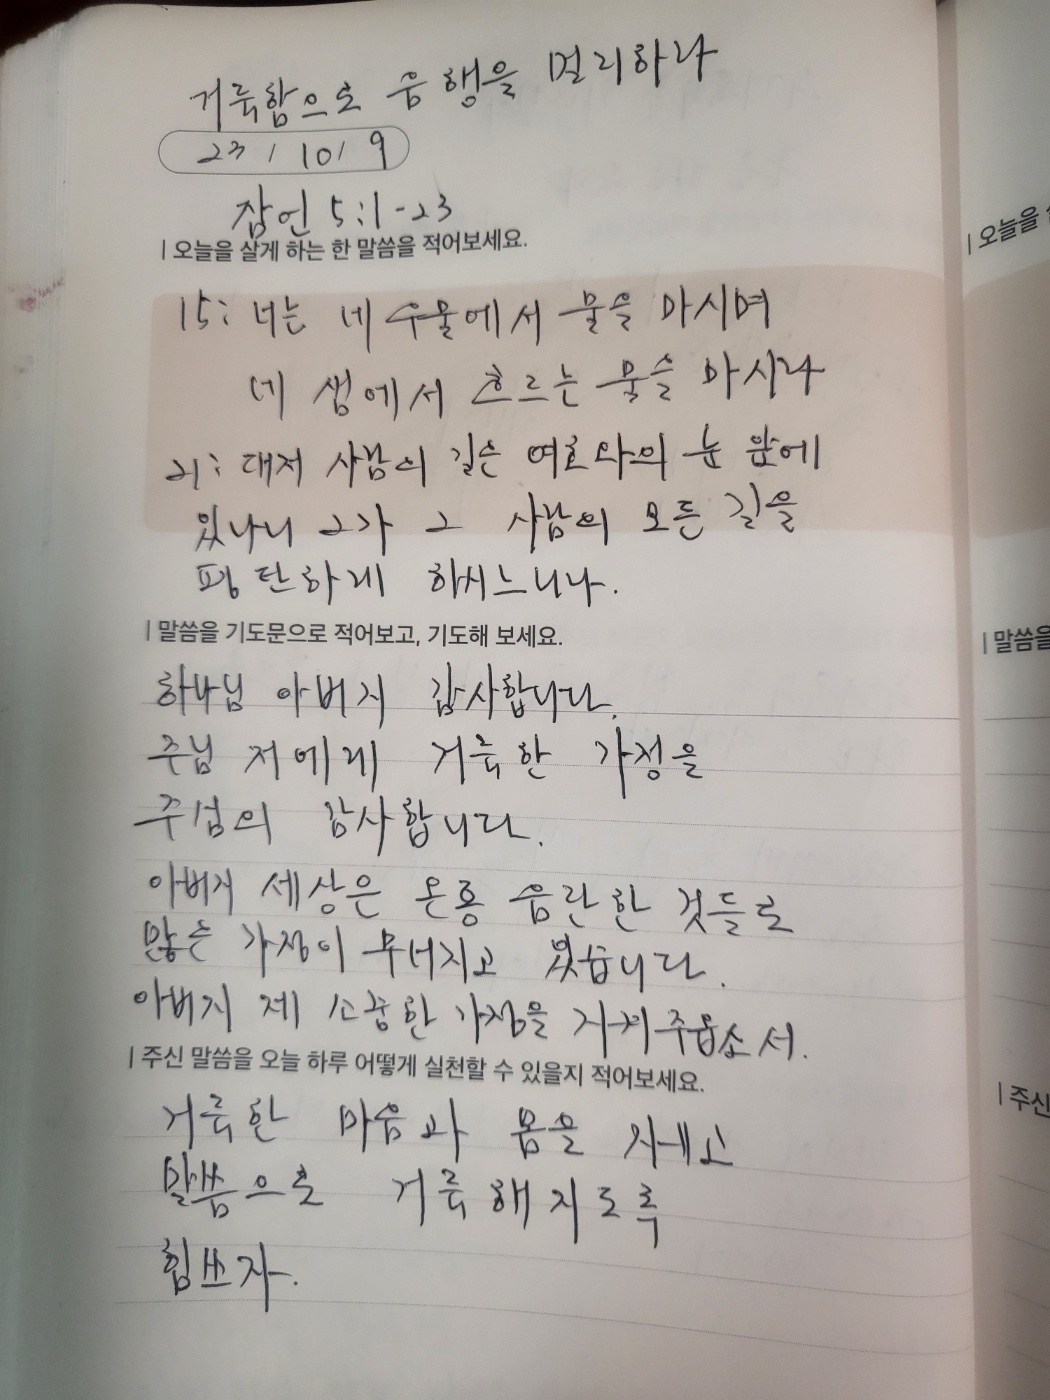 거룩함으로 음행을 멀리하라
23/10/9
잠언 5:1-23
| 오늘을 살게 하는 한 말씀을 적어보세요.
15: 너는 네 우물에서 물을 마시며
네 샘에서 흐르는 물을 마시라
21: 대저 사람의 길은 여호와의 눈 앞에
있나니 그가 그 사람의 모든 길을
평탄하게 하시느니라.
| 말씀을 기도문으로 적어보고, 기도해 보세요.
하나님 아버지 감사합니다.
주님 저에게 거룩한 가정을
주심의 감사합니다.
아버지 세상은 온통 음란한 것들로
많은 가정이 무너지고 있습니다.
아버지 제 소중한 가정을 지켜주옵소서.
| 주신 말씀을 오늘 하루 어떻게 실천할 수 있을지 적어보세요.
거룩한 마음과 몸을
말씀으로 거룩해지도록
힘쓰자.
| 오늘을
| 말씀을
| 주신